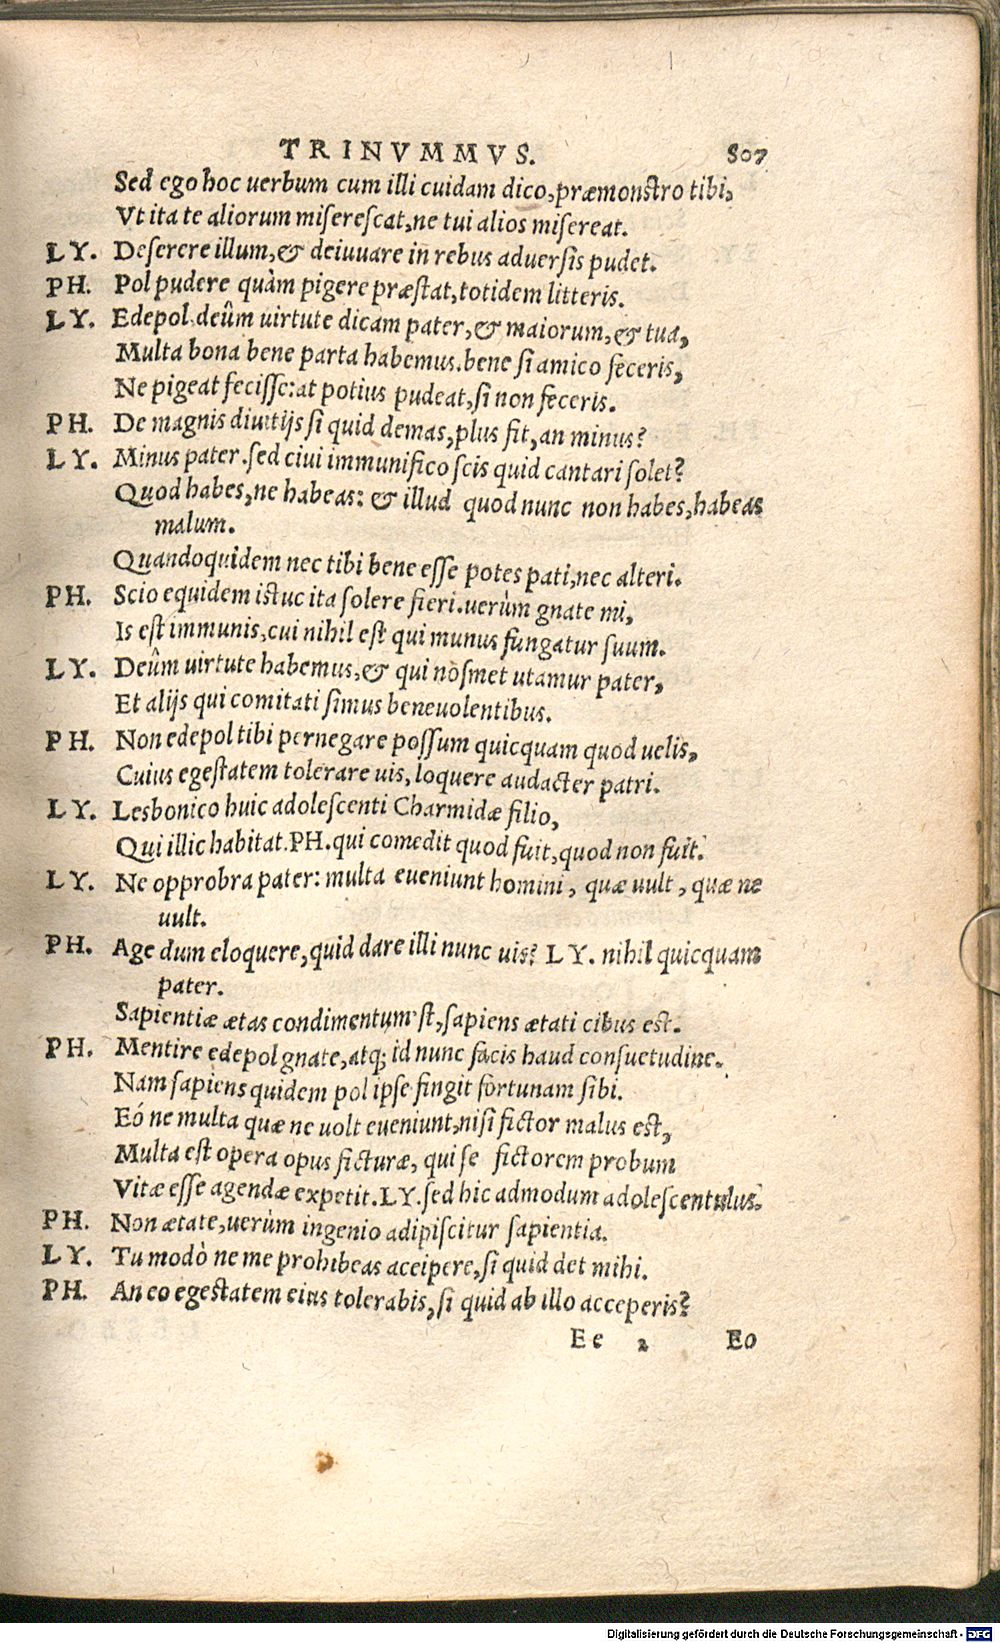 TRINVMMVS. 807
Sed ego hoc uerbum cum illi cuidam dico, præmonstro tibi,
Vt ita te aliorum miserescat, ne tui alios misereat.
LY. Deserere illum, & deiuuare in rebus aduersis pudet.
PH. Pol pudere quàm pigere præstat, totidem litteris.
LY. Edepol deûm uirtute dicam pater, & maiorum, & tua,
Multa bona bene parta habemus. bene si amico feceris,
Ne pigeat fecisse: at potius pudeat, si non feceris.
PH. De magnis diuitijs si quid demas, plus fit, an minus?
LY. Minus pater. sed ciui immunifico scis quid cantari solet?
Quod habes, ne habeas: & illud quod nunc non habes, habeas
malum.
Quandoquidem nec tibi bene esse potes pati, nec alteri.
PH. Scio equidem istuc ita solere fieri. uerùm gnate mi,
Is est immunis, cui nihil est qui munus fungatur suum.
LY. Deûm uirtute habemus, & qui nosmet utamur pater,
Et alijs qui comitati simus beneuolentibus.
PH. Non edepol tibi pernegare possum quicquam quod uelis,
Cuius egestatem tolerare uis, loquere audacter patri.
LY. Lesbonico huic adolescenti Charmidæ filio,
Qui illic habitat. PH. qui comedit quod fuit, quod non fuit.
LY. Ne opprobra pater: multa eueniunt homini, quæ uult, quæ ne
uult.
PH. Age dum eloquere, quid dare illi nunc uis? LY. nihil quicquam
pater.
Sapientiæ ætas condimentum'st, sapiens ætati cibus est.
PH. Mentire edepol gnate, atq; id nunc facis haud consuetudine.
Nam sapiens quidem pol ipse fingit fortunam sibi.
Eó ne multa quæ ne uolt eueniunt, nisi fictor malus est,
Multa est opera opus ficturæ, qui se fictorem probum
Vitæ esse agendæ expetit. LY. sed hic admodum adolescentulus.
PH. Non ætate, uerùm ingenio adipiscitur sapientia.
LY. Tu modò ne me prohibeas accipere, si quid det mihi.
PH. An eo egestatem eius tolerabis, si quid ab illo acceperis?
Ee 2 Eo
Digitalisierung gefördert durch die Deutsche Forschungsgemeinschaft - DFG